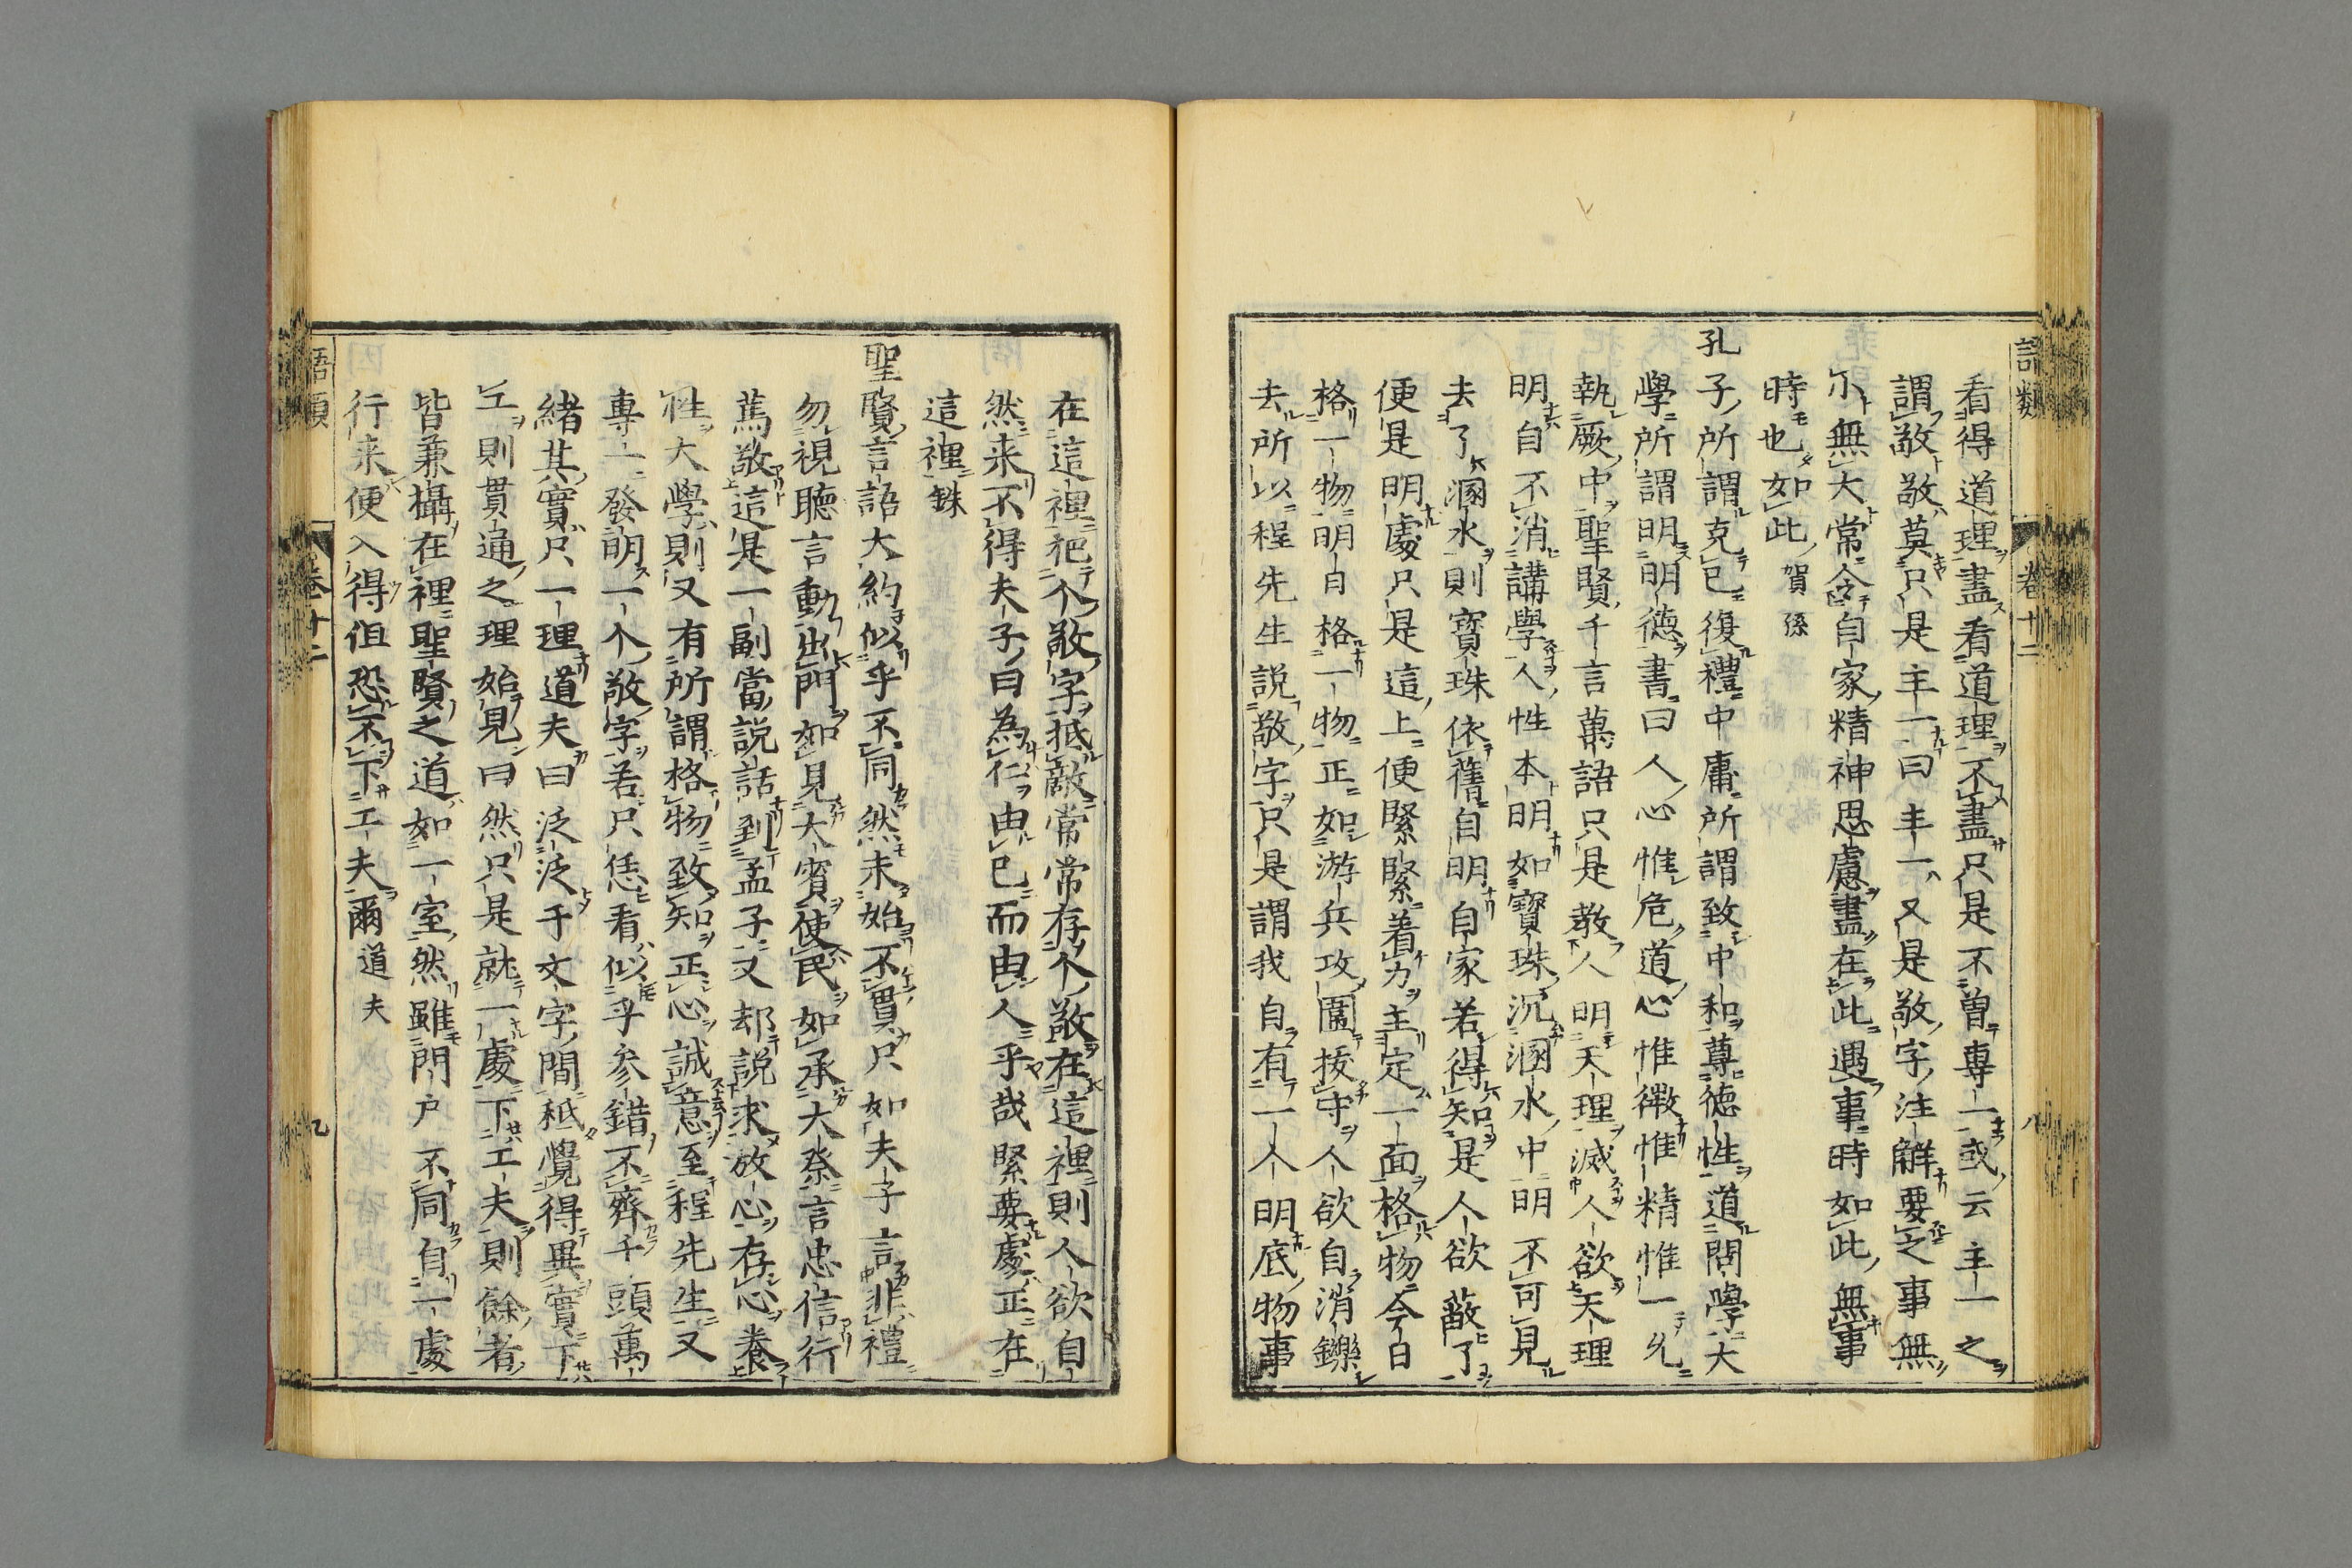 語類 卷十二 八
看得道理盡看道理不盡只是不曽專一或云主一之
謂敬敬莫只是主一曰主一又是敬字注解要之事無
小無大常令自家精神思慮盡在此遇事時如此無事
時也如此賀孫
孔子所謂克已復禮中庸所謂致中和尊徳性道問學大
學所謂明明徳書曰人心惟危道心惟微惟精惟一允
執厥中聖賢千言萬語只是教人明天理滅人欲天理
明自不消講學人性本明如寶珠沉溷水中明不可見
去了溷水則寳珠依舊自明自家若得知是人欲蔽了
便是明處只是這上便緊緊着力主定一面格物今日
格一物明日格一物正如游兵攻圍拔守人欲自消鑠
去所以程先生説敬字只是謂我自有一人明底物事
在這裡把个敬字抵敵常常存个敬在這裡則人欲自
然来不得夫子曰為仁由已而由人乎哉緊要處正在
這裡銖
聖賢言語大約似乎不同然未始不貫只如夫子言非禮
勿視聽言動出門如見大賓使民如承大祭言忠信行
篤敬這是一副當説話到孟子又却説求放心存心養
性大學則又有所謂格物致知正心誠意至程先生又
專一發明一个敬字若只恁看似乎参錯不齊千頭萬
緒其實只一理道夫曰泛泛于文字間秪覺得異實下
工則貫通之理始見曰然只是就一處下工夫則餘者
皆兼攝在裡聖賢之道如一室然雖門户不同自一處
行来便入得但恐不下工夫爾道夫
語類 卷十二 九